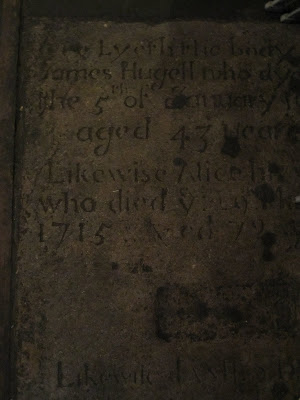 Lyeth the body
James Hugell who dy
the 5th of January
aged 43 year
Likewise Alice hi
who died ye
1715 72
Likewise